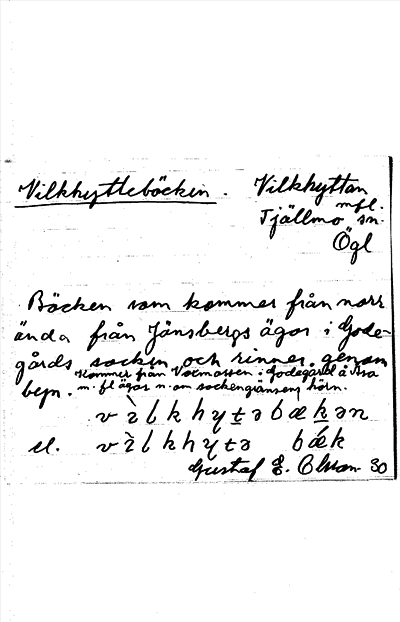 Vilkhyttebäcken. Vilkhyttan
m fl.
Tjällmo sn.
Ögl
Bäcken som kommer från norr
ända från Jönsbergs ägor i Gode-
gårds socken och rinner genom
kommer från Voxmossen i Godegård å Åsa
byn. m. fl ägor n. om sockengränsens hörn.
v ì l k h y t ə b æ k ə n
el. v ì l k h y t ə b ǽ k
Gustaf E. Olsson 30